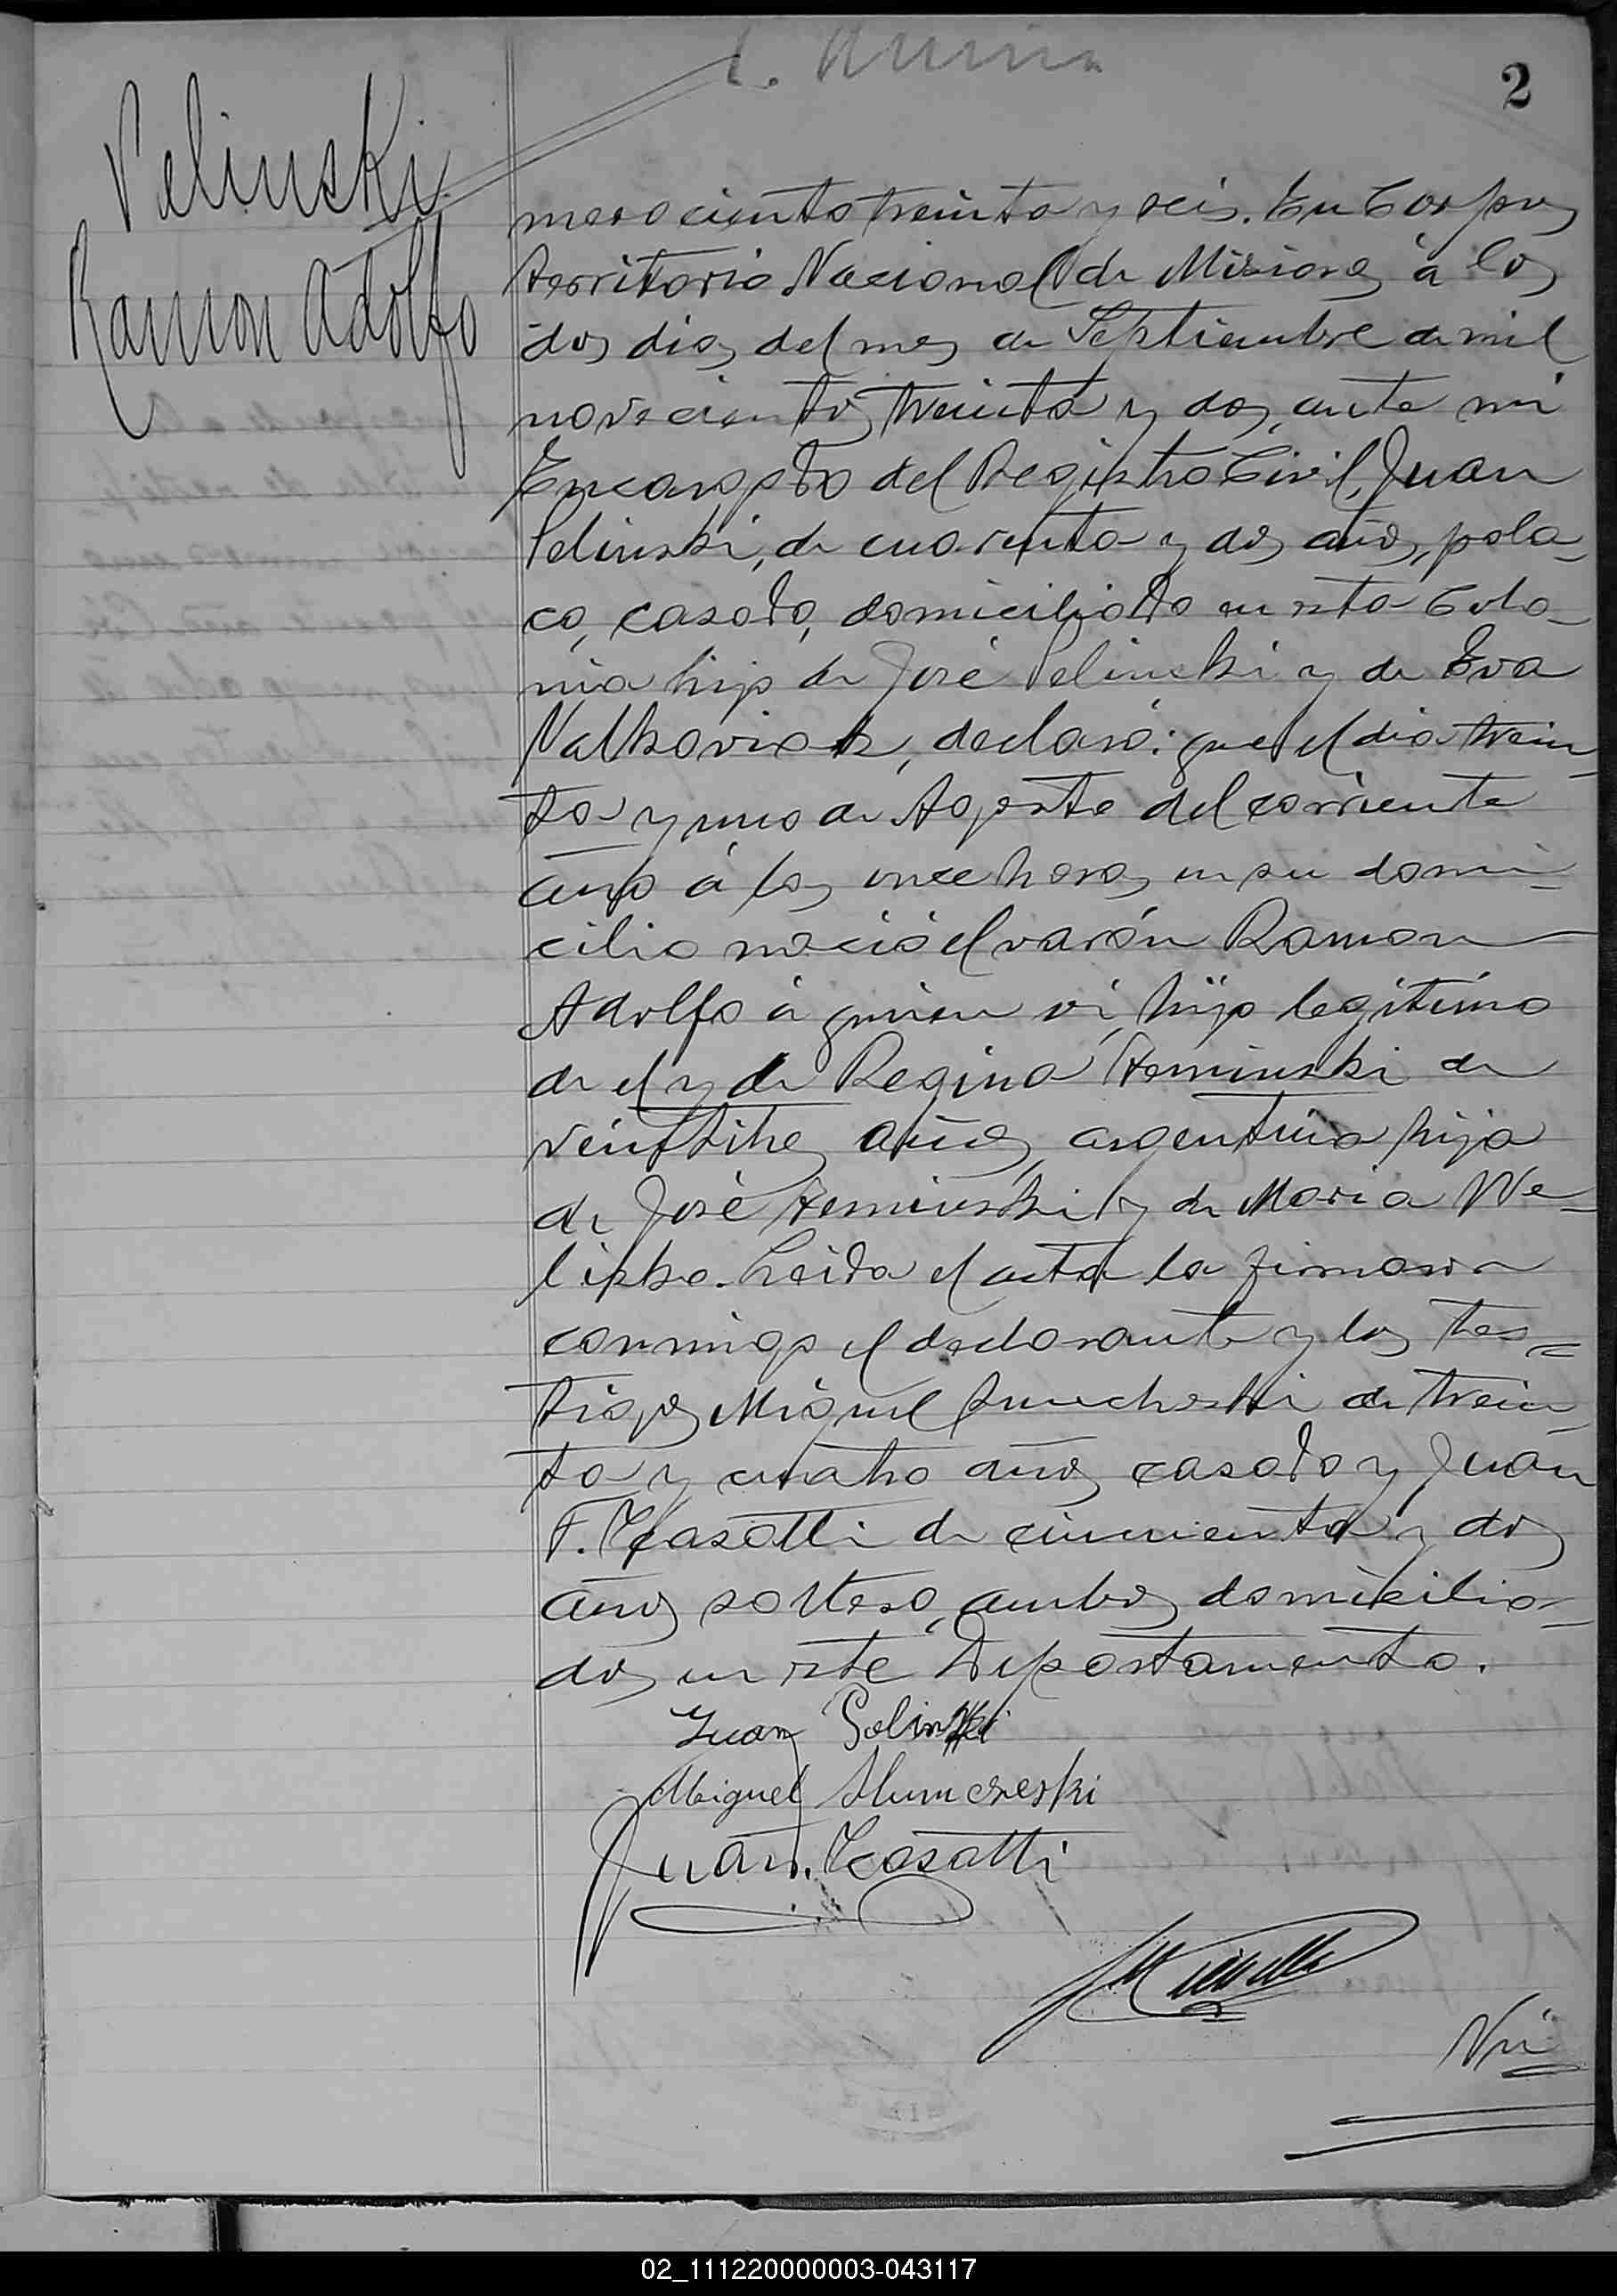 2
Pelinski
Ramon Adolfo
mero ciento treinta y seis. En Corpus
territorio Nacional de Misiones à los
dos dias del mes de Septiembre de mil
novecientos treinta y dos, ante mi
Encargado del Registro Civil, Juan
Pelinski, de cuarenta y dos años, pola-
co, casado, domiciliado en esta Colo-
nia hijo de José Pelinski y de Eva
declaró: que el dia trein-
ta y uno de Agosto del corriente
año á las once horas en su domi-
cilio nació el varón Ramon
Adolfo á quien vi, hijo legitimo
de el y de Regina de
veintitres años argentina hija
de José y de Maria We-
Leida el acta la firmaron
conmigo el declarante y los tes-
tigos Miguel de trein-
ta y cuatro años casado y Juan
F. Casatti de cincuenta y dos
años soltero, ambos domicilia-
dos en este Departamento.
Juan Polinski
Miguel
Juan. Casatti
Nú
02_111220000003-043117